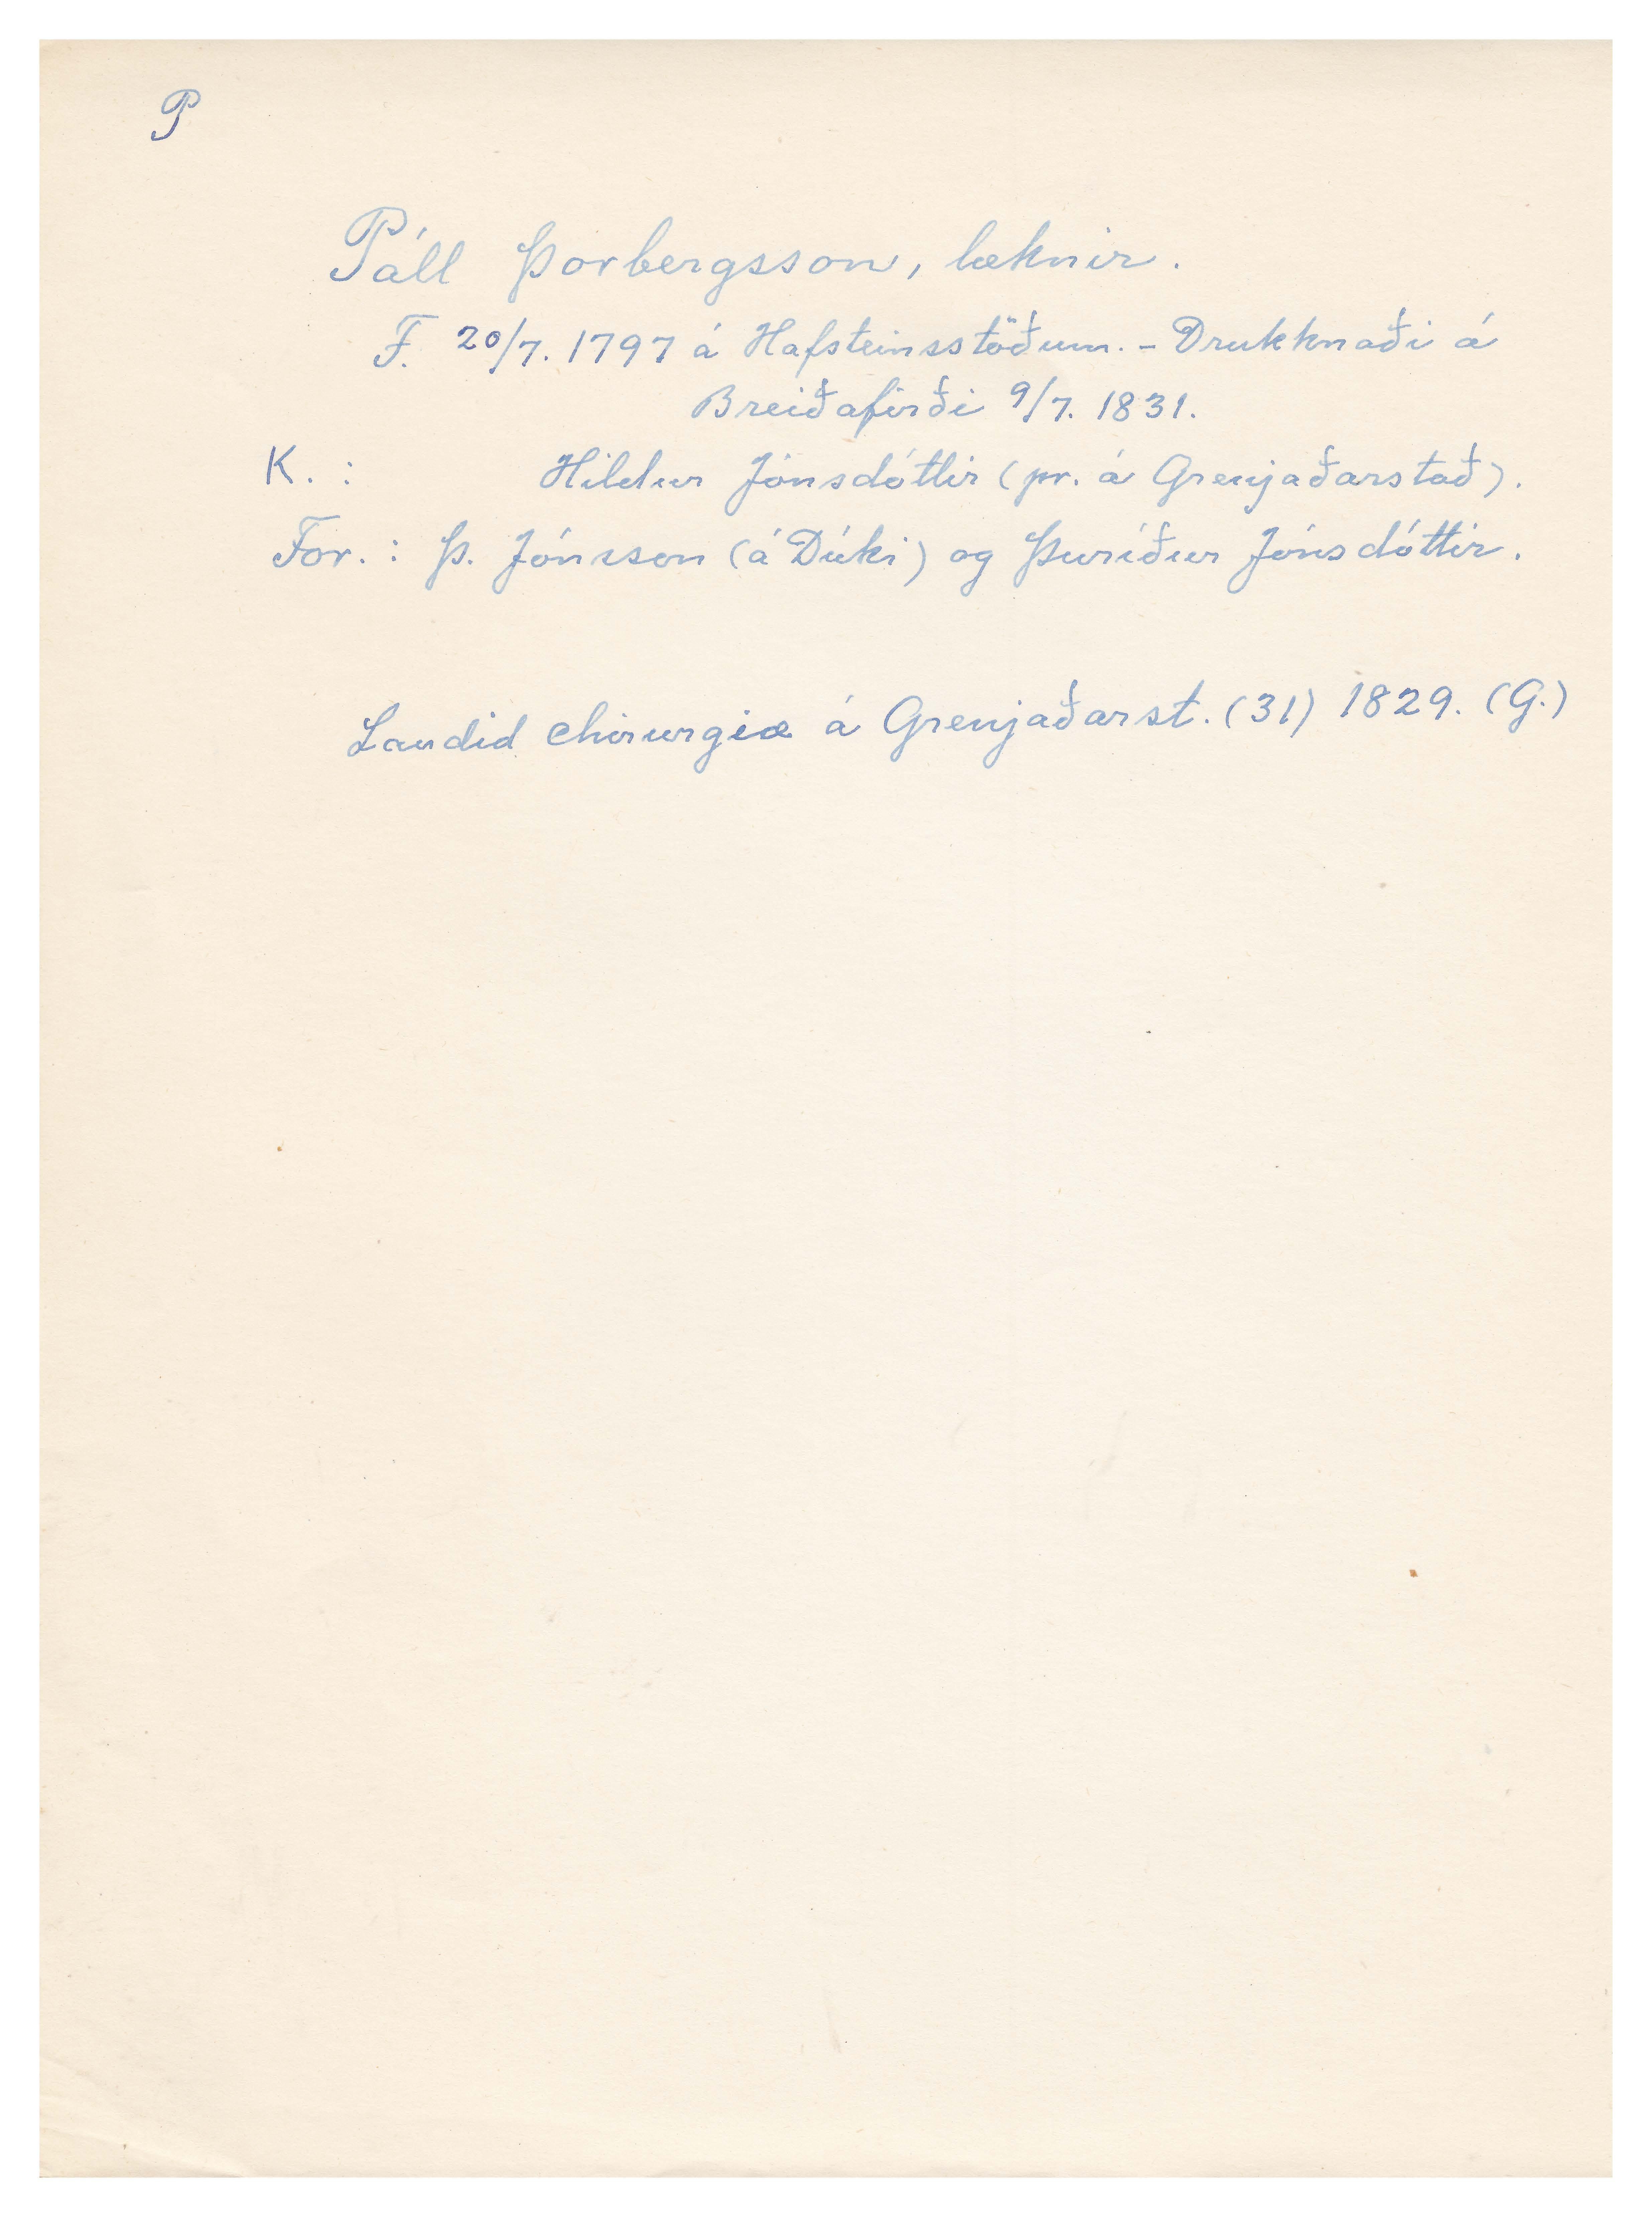 P
Páll Þorbergsson, læknir.
F. 20/7. 1797 á Hafsteinsstöðum. - Drukknaði á
Breiðafirði 9/7. 1831.
K. : Hildur Jónsdóttir (pr. á Grenjaðarstað).
For. : Þ. Jónsson (á Dúki) og Þuríður Jónsdóttir.
Laudid chirurgiæ á Grenjaðarst. (31) 1829. (G.)